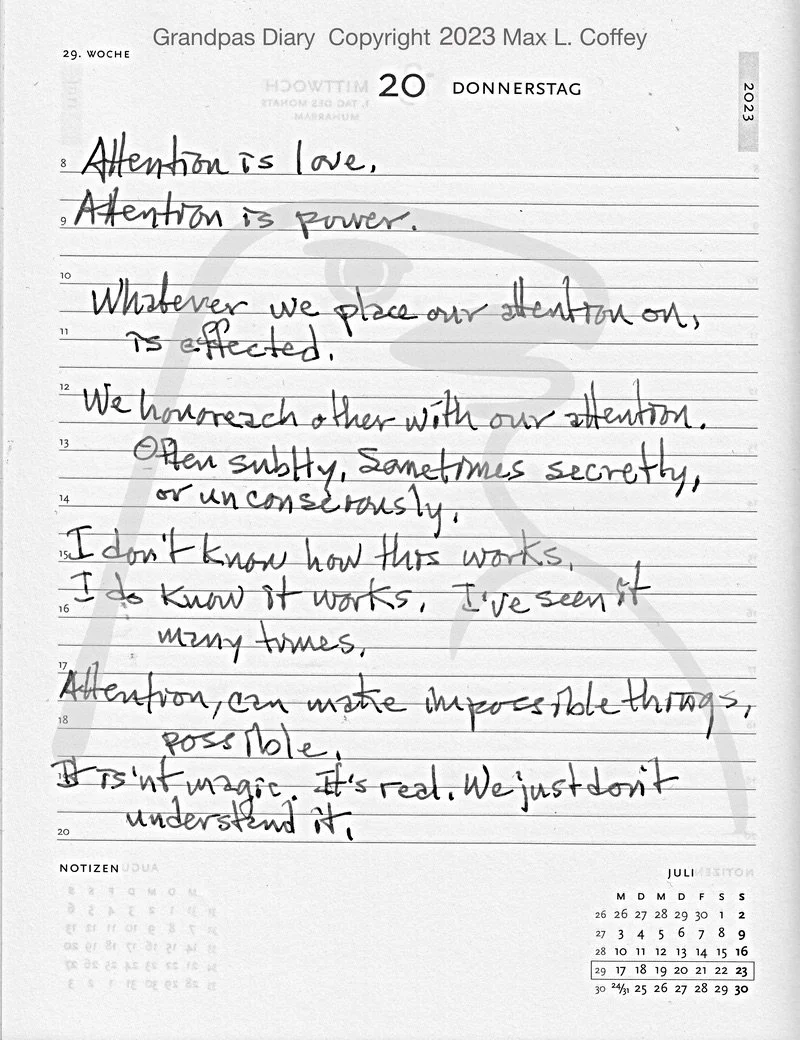 Grandpas Diary Copyright 2023 Max L. Coffey
29. WOCHE
20 DONNERSTAG
2023
8 Attention is love.
9 Attention is power.
10
Whatever we place our attention on,
11 is effected.
12 We honor each other with our attention.
13 Often subtly, Sometimes secretly,
14 or unconsciously.
15 I don't know how this works.
I do know it works. I've seen it
16 many times.
17 Attention, can make impossible things,
18 possible.
19 It is'nt magic. It's real. We just don't
understand it.
20
NOTIZEN
JULI
M D M D F S S
26 26 27 28 29 30 1 2
27 3 4 5 6 7 8 9
28 10 11 12 13 14 15 16
29 17 18 19 20 21 22 23
30 24/31 25 26 27 28 29 30